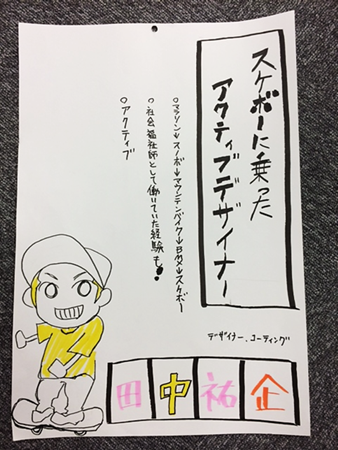 スケボーに乗った
アクティブデザイナー
○マラソン→スノボ→マウンテンバイク→BMX→スケボー
○社会福祉師として働いていた経験も!
○アクティブ
デザイナー、コーディング
田中祐企